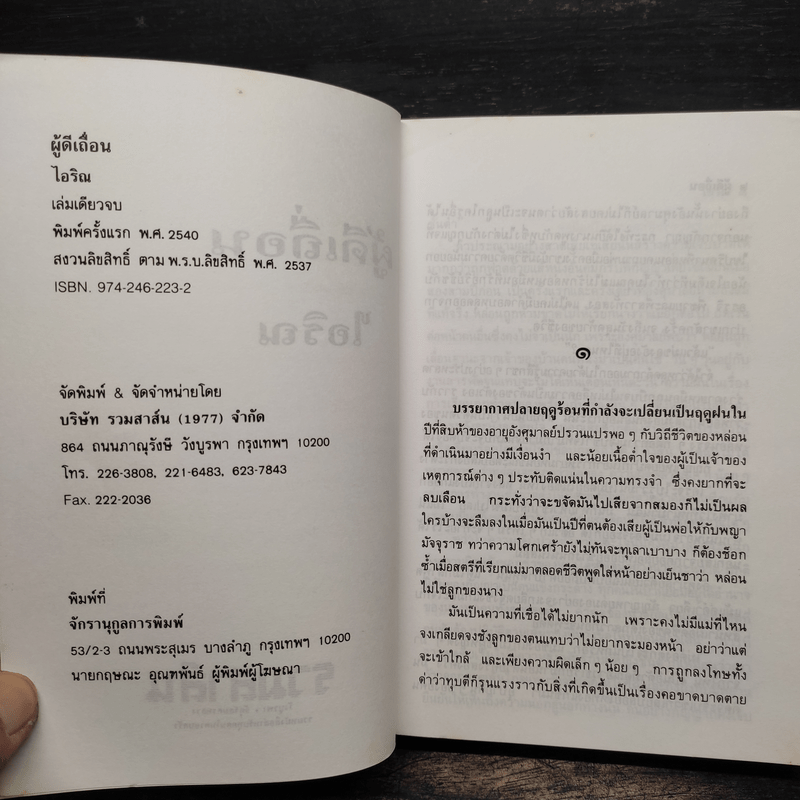 ผู้ดีเถื่อน
ไอริณ
เล่มเดียวจบ
พิมพ์ครั้งแรก พ.ศ. 2540
สงวนลิขสิทธิ์ ตาม พ.ร.บ.ลิขสิทธิ์ พ.ศ. 2537
ISBN. 974-246-223-2
จัดพิมพ์ & จัดจำหน่ายโดย
บริษัท รวมสาส์น (1977) จำกัด
864 ถนนภาณุรังษี วังบูรพา กรุงเทพฯ 10200
โทร. 226-3808, 221-6483, 623-7843
Fax. 222-2036
พิมพ์ที่
จักรานุกูลการพิมพ์
53/2-3 ถนนพระสุเมร บางลำภู กรุงเทพฯ 10200
นายกฤษณะ อุณฑพันธ์ ผู้พิมพ์ผู้โฆษณา
๑
บรรยากาศปลายฤดูร้อนที่กำลังจะเปลี่ยนเป็นฤดูฝนใน
ปีที่สิบห้าของอายุอังศุมาลย์ปรวนแปรพอ ๆ กับวิถีชีวิตของหล่อน
ที่ดำเนินมาอย่างมีเงื่อนงำ และน้อยเนื้อต่ำใจของผู้เป็นเจ้าของ
เหตุการณ์ต่าง ๆ ประทับติดแน่นในความทรงจำ ซึ่งคงยากที่จะ
ลบเลือน กระทั่งว่าจะขจัดมันไปเสียจากสมองก็ไม่เป็นผล
ใครบ้างจะลืมลงในเมื่อมันเป็นปีที่ตนต้องเสียผู้เป็นพ่อให้กับพญา
มัจจุราช ทว่าความโศกเศร้ายังไม่ทันจะทุเลาเบาบาง ก็ต้องช็อก
ซ้ำเมื่อสตรีที่เรียกแม่มาตลอดชีวิตพูดใส่หน้าอย่างเย็นชาว่า หล่อน
ไม่ใช่ลูกของนาง
มันเป็นความที่เชื่อได้ไม่ยากนัก เพราะคงไม่มีแม่ที่ไหน
จงเกลียดจงชังลูกของตนแทบว่าไม่อยากจะมองหน้า อย่าว่าแต่
จะเข้าใกล้ และเพียงความผิดเล็ก ๆ น้อย ๆ การถูกลงโทษทั้ง
ด่าว่าทุบตีก็รุนแรงราวกับสิ่งที่เกิดขึ้นเป็นเรื่องคอขาดบาดตาย